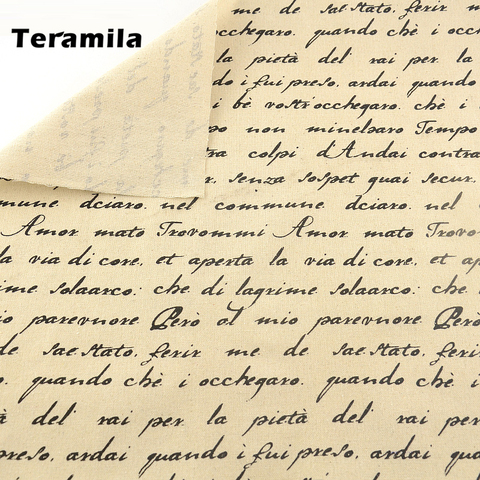 Teramila
me de sae Stato, ferir m
occhegaro. quando chè i occh
la pietà del' rai per la
do i fui preso, ardai quando
i bè vostr'occhegaro. chè i
non minelsaro Tempo
tra colpi d'Andai contra
r, senza sospet guai secur.
mmune dciaro. nel commune dciaro. nel
Amor mato Trovommi Amor mato Trovo
la via di core, et aperta la via di core, et ap
ime solaarco: che di lagrime solaarco: che
io parevnore Però al mio parevnore Però
de sae Stato, ferir me de sae Stato, ferir
o. quando chè i occhegaro. quando chè i
à del' rai per la pietà del' rai per
preso, ardai quando i fui preso, ardai qua